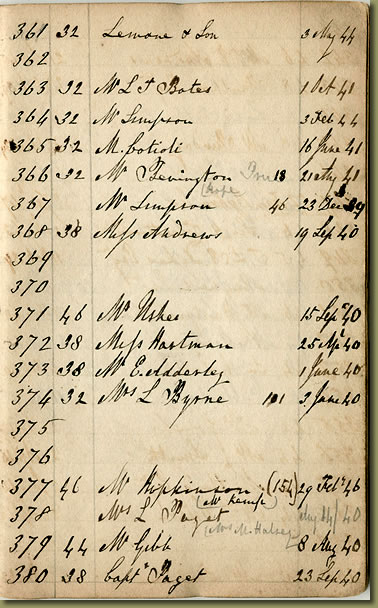 361 32 Lemone & Son 3 May 44
362
363 32 Mr L J Bates 1 Oct 41
364 32 Mr Simpson 3 Feb 44
365 32 M. Cotioli 16 June 41
366 32 Mr Tevington 18 21 41
(Hope
367 Mr Simpson 46 23 Dec
368 38 Miss Andrews 19 Sep 40
369
370
371 46 Mr Nskes 15 Sepr 40
372 38 Miss Hartman 25 Mh 40
373 38 Mr E. Adderley 1 June 40
374 32 Mrs L Byrne 101 3. June 40
375
376
377 46 Mr Hopkinson (154) 29 Feby 46
(Mr Kemp)
378 Mrs L Paget 40
(Mrs M. Halsey
379 44 Mr Gibb 8 Aug 40
380 38 Captn Paget 23 Sep 40